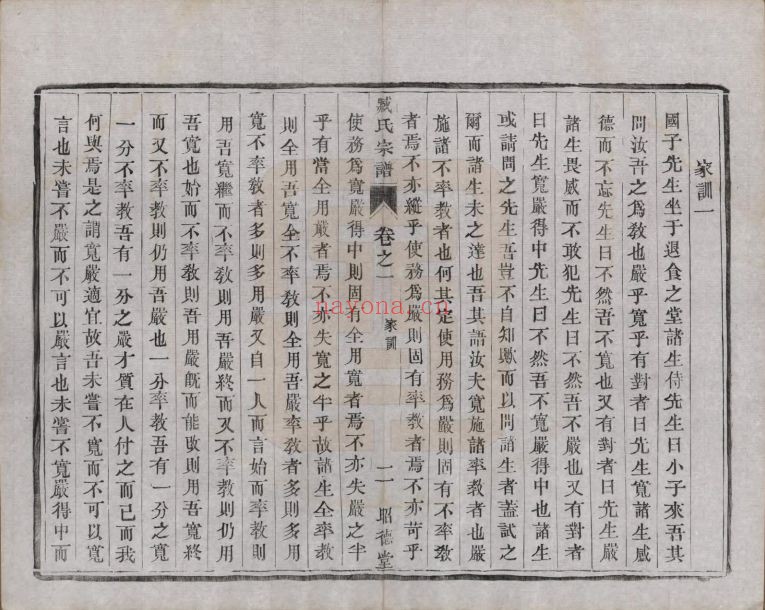 家訓一
國子先生坐于退食之堂諸生侍先生曰小子來吾其
問汝吾之爲敎也嚴乎寬乎有對者曰先生寬諸生感
德而不忘先生曰不然吾不寬也又有對者曰先生嚴
諸生畏威而不敢犯先生曰不然吾不嚴也又有對者
曰先生寬嚴得中先生曰不然吾不寬嚴得中也諸生
或請問之先生吾豈不自知歟而以問諸生者蓋試之
爾而諸生未之達也吾其語汝夫寬施諸率敎者也嚴
施諸不率敎者也何其定使用務爲嚴則固有不率敎
者焉不亦縱乎使務爲嚴則固有率敎者焉不亦苛乎
臧氏宗譜
卷之一
家訓
二
昭德堂
使務爲寬嚴得中則固有全用寬者焉不亦失嚴之半
乎有當全用嚴者焉不亦失寬之半乎故諸生全率敎
則全用吾寬全不率敎則全用吾嚴率敎者多則多用
寬不率敎者多則多用嚴又自一人而言始而率敎則
用吾寬繼而不率敎則用吾嚴終而又不率敎則仍用
吾寬也始而不率敎則吾用嚴旣而能改則用吾寬終
而又不率敎則仍用吾嚴也一分率敎吾有一分之寬
一分不率敎吾有一分之嚴才質在人付之而已而我
何與焉是之謂寬嚴適宜故吾未嘗不寬而不可以寬
言也未嘗不嚴而不可以嚴言也未嘗不寬嚴得中而
nayona.cn